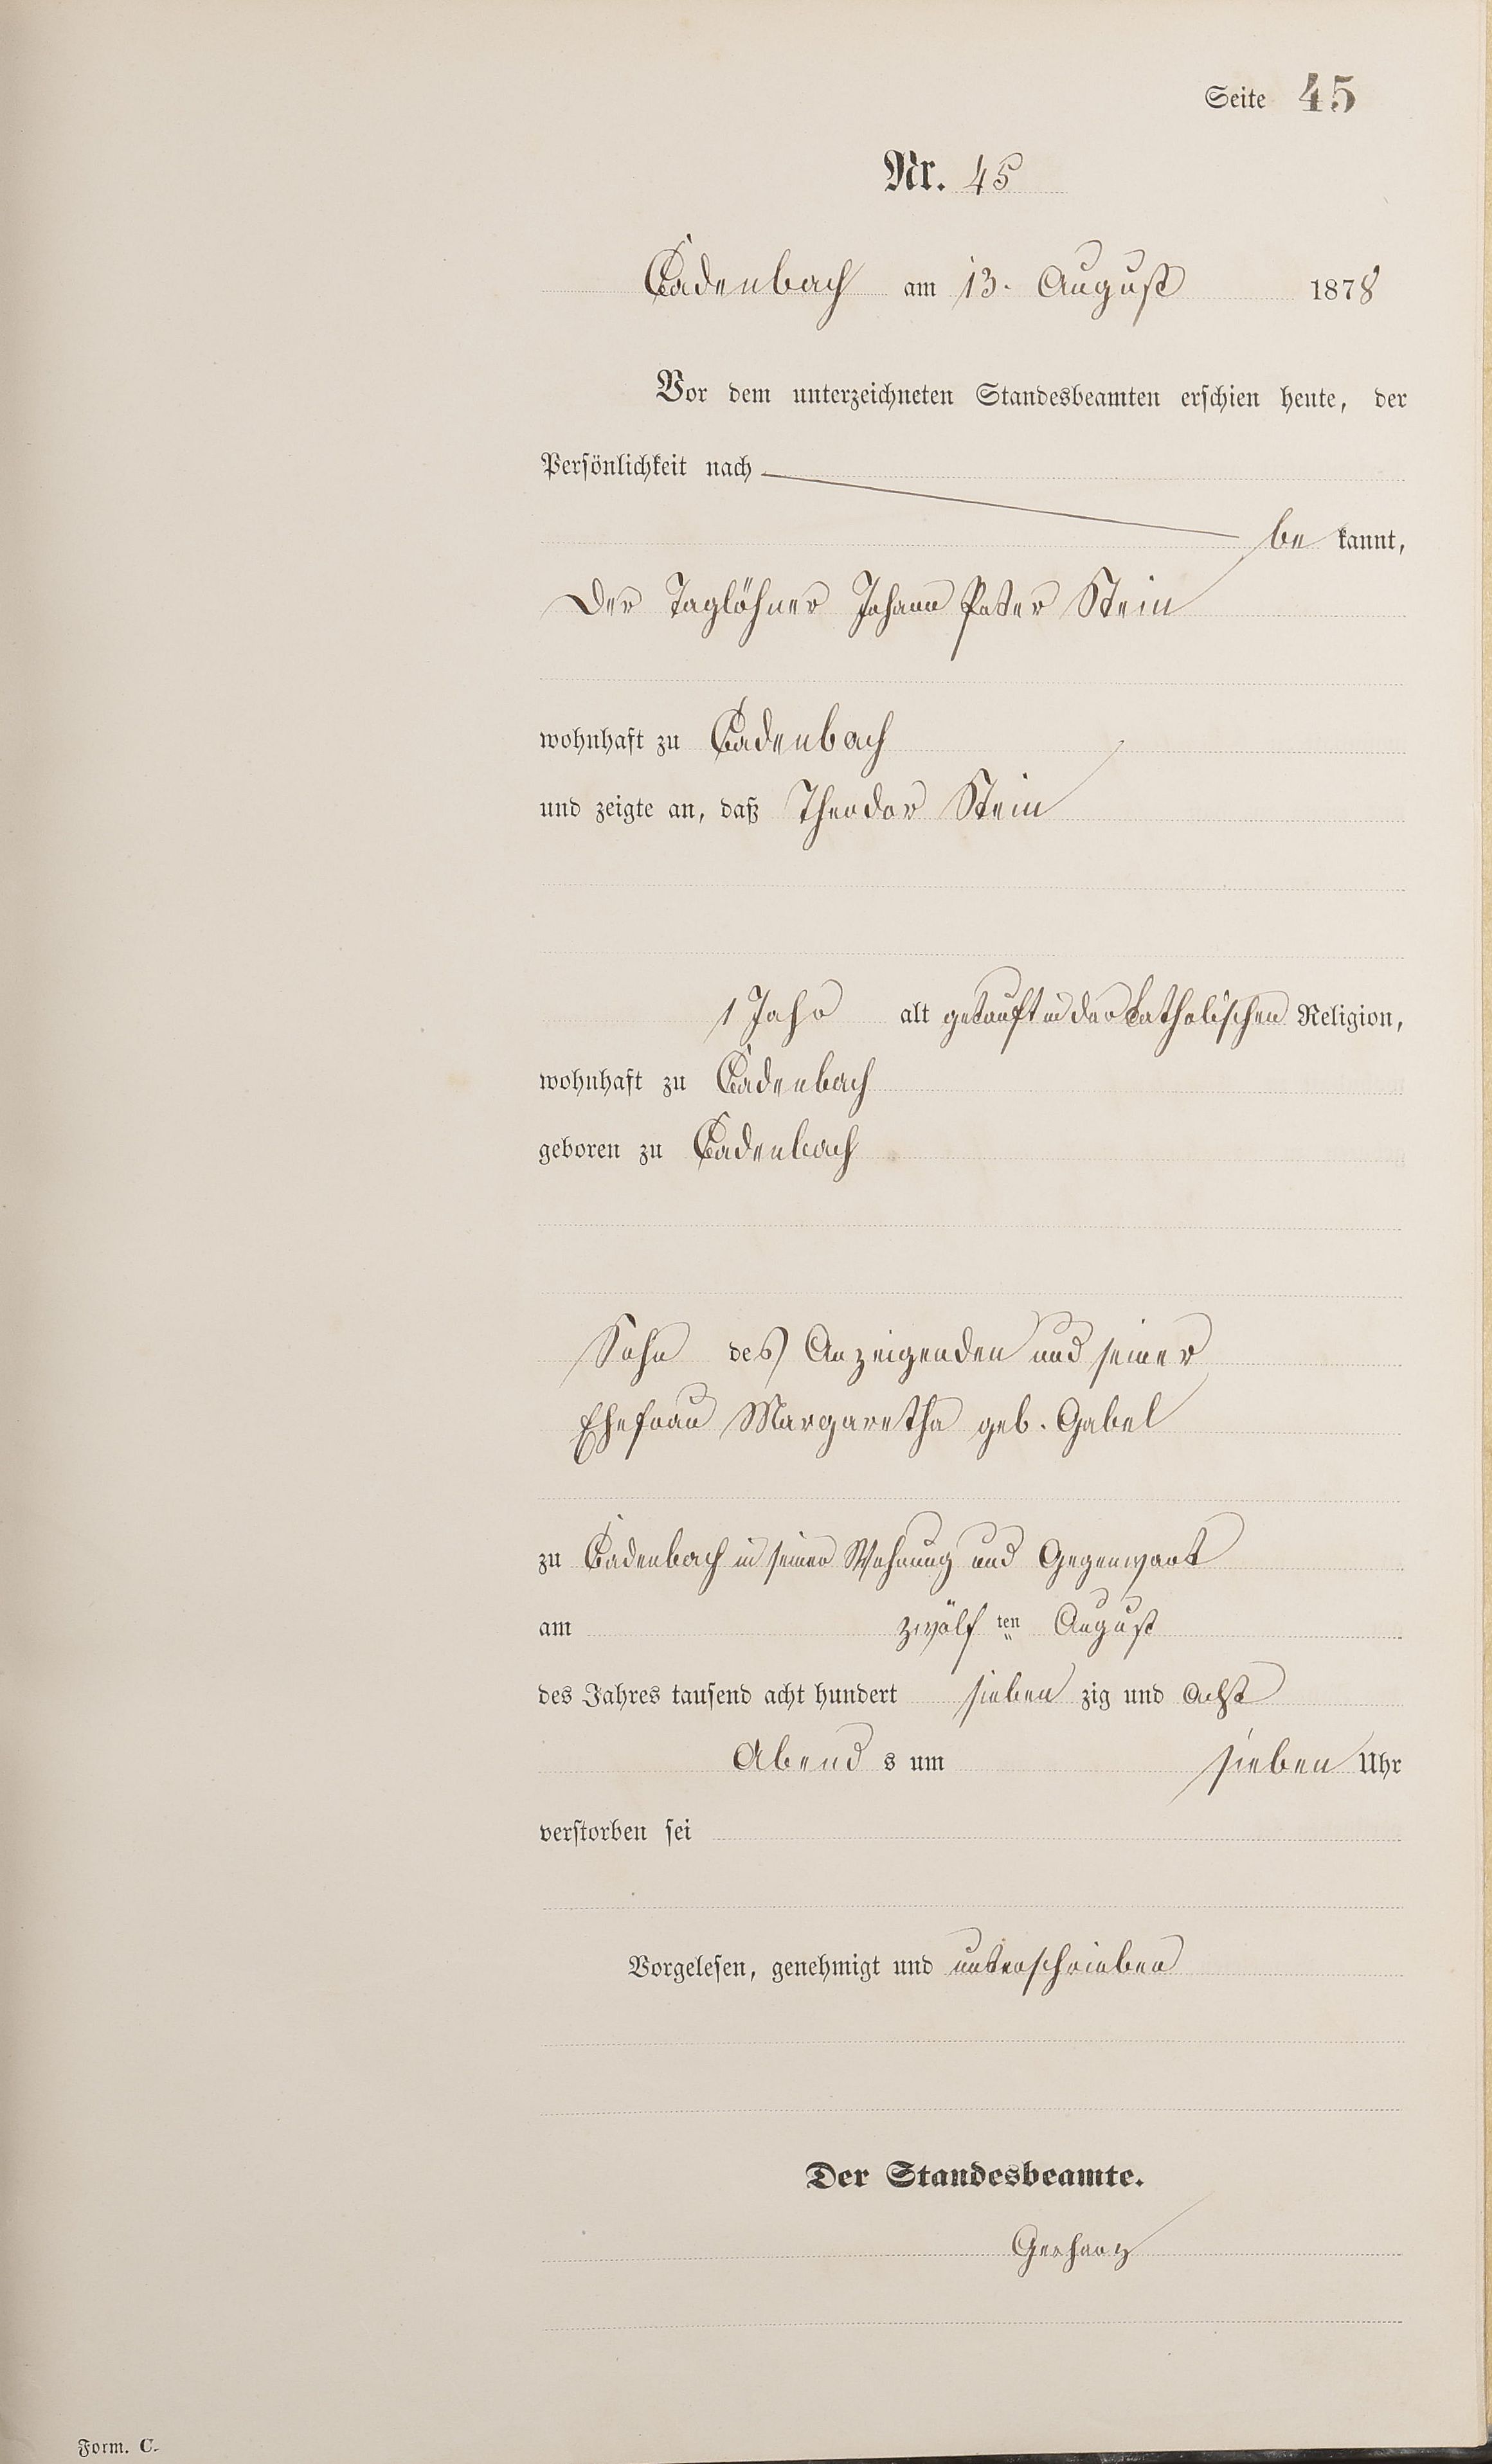 Seite 45
Nr. 45
Cadenbach am 13. August 1878
Vor dem unterzeichneten Standesbeamten erschien heute, der
Persönlichkeit nach
be kannt,
Der Taglöhner Johann Peter Stein
wohnhaft zu Cadenbach
und zeigte an, daß Theodor Stein
1 Jahr alt getauft in der katholischen Religion,
wohnhaft zu Cadenbach
geboren zu Cadenbach
Sohn des Anzeigenden und seiner
Ehefrau Margaretha geb. Gabel
zu Cadenbach in seiner Wohnung und Gegenwart
am zwölf ten August
des Jahres tausend acht hundert sieben zig und acht
Abend s um sieben Uhr
verstorben sei
Vorgelesen, genehmigt und unterschrieben
Der Standesbeamte.
Gerharz
Form. C.